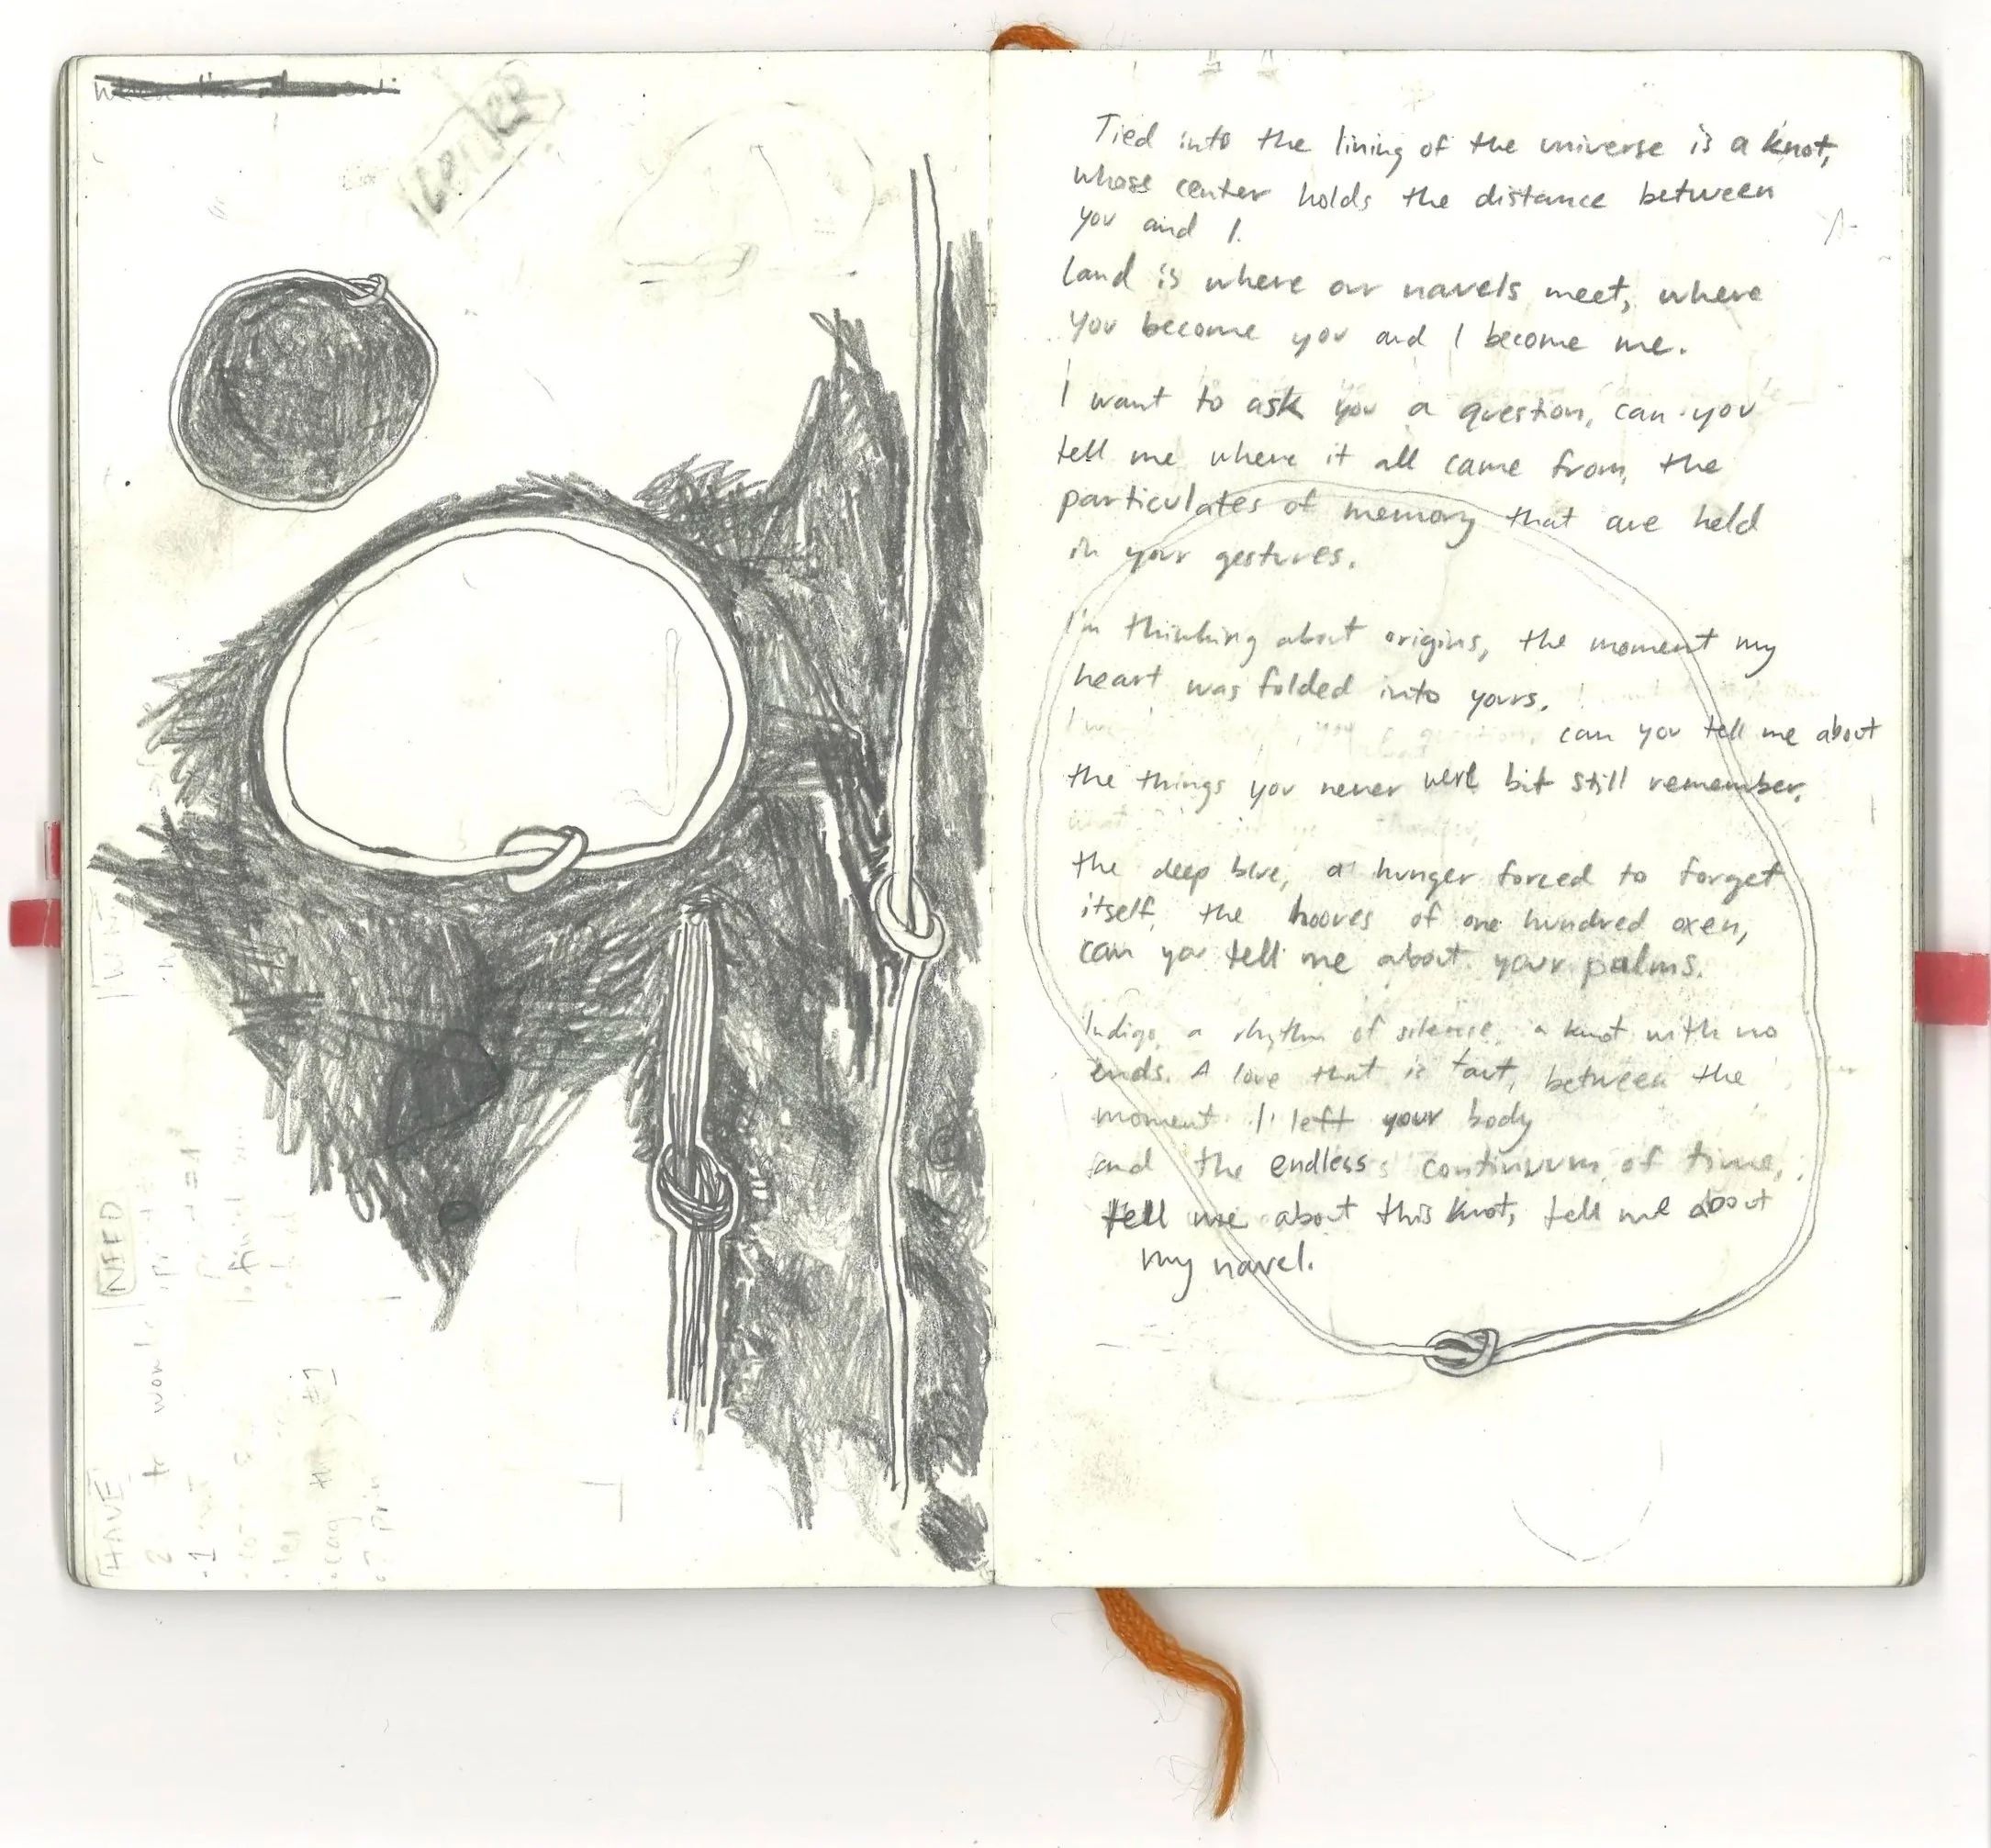 Tied into the lining of the universe is a knot,
whose center holds the distance between
you and I.
Land is where our navels meet, where
you become you and I become me.
I want to ask you a question, can you
tell me where it all came from, the
particulates of memory that are held
in your gestures.
I'm thinking about origins, the moment my
heart was folded into yours.
can you tell me about
the things you never were but still remember.
the deep blue, a hunger forced to forget
itself, the hooves of one hundred oxen,
can you tell me about your palms.
Indigo, a rhythm of silence, a knot with no
ends. A love that is taut, between the
moment I left your body
and the endless continuum of time,
tell me about this knot, tell me about
my navel.
NEED
HAVE